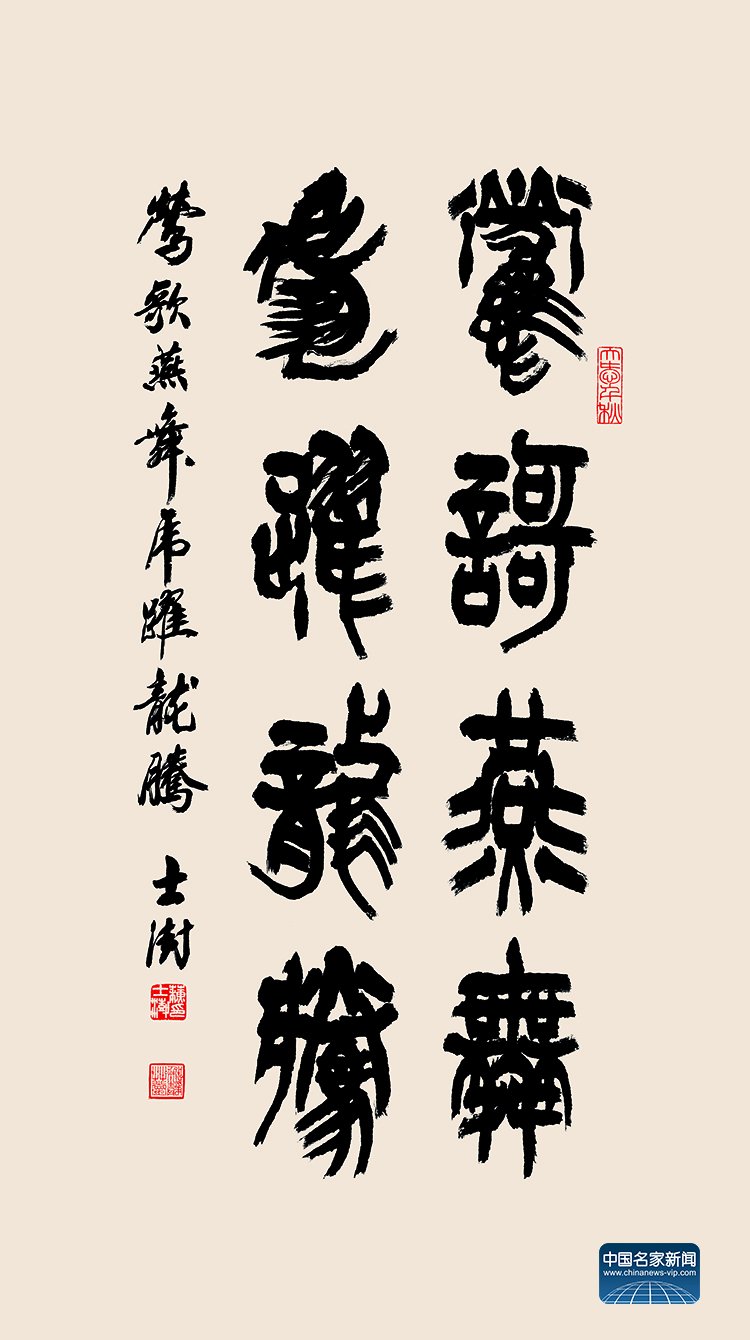 鶯謌燕舞
虎躍龍騰
鶯歌燕舞虎躍龍騰 士澍
中国名家新闻
www.chinanews-vip.com